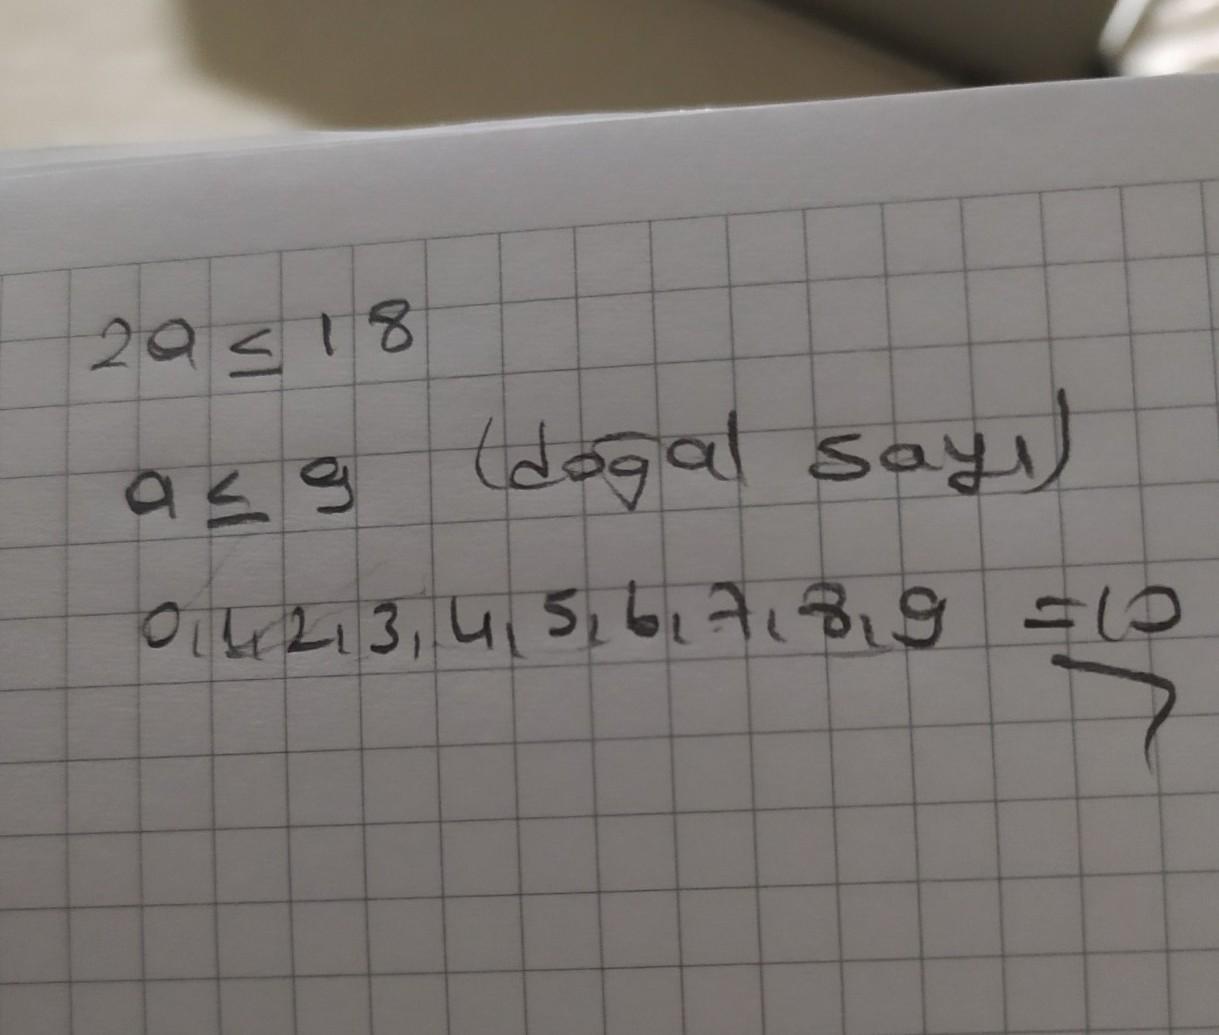 2a ≤ 18
a ≤ 9 (doğal sayı)
0, 1, 2, 3, 4, 5, 6, 7, 8, 9 = 10